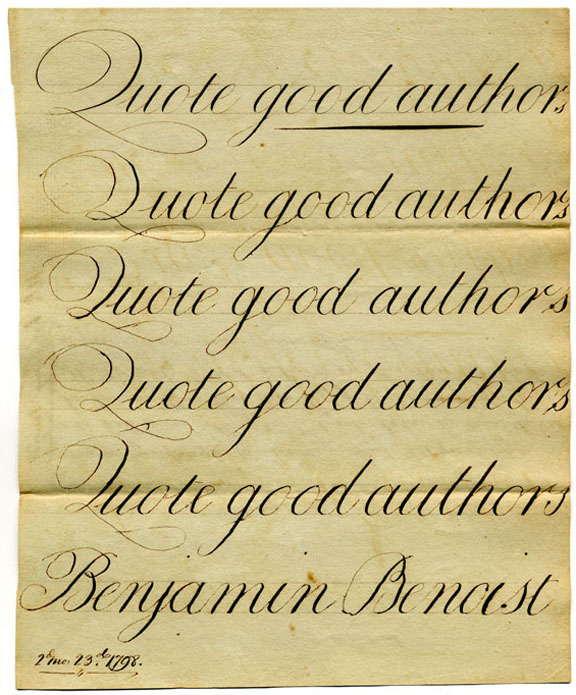 Quote good authors
Quote good authors
Quote good authors
Quote good authors
Quote good authors
Benjamin Benoist
2d mo. 23d. 1798.